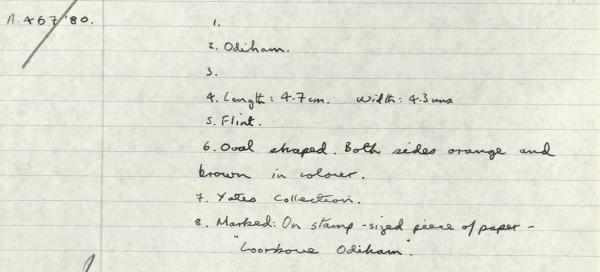 A.467'80.
1.
2. Odiham.
3.
4. Length: 4.7cm. Width: 4.3cms
5. Flint.
6. Oval shaped. Both sides orange and
brown in colour.
7. Yates Collection.
8. Marked: On stamp-sized piece of paper -
"Loosbove Odiham".